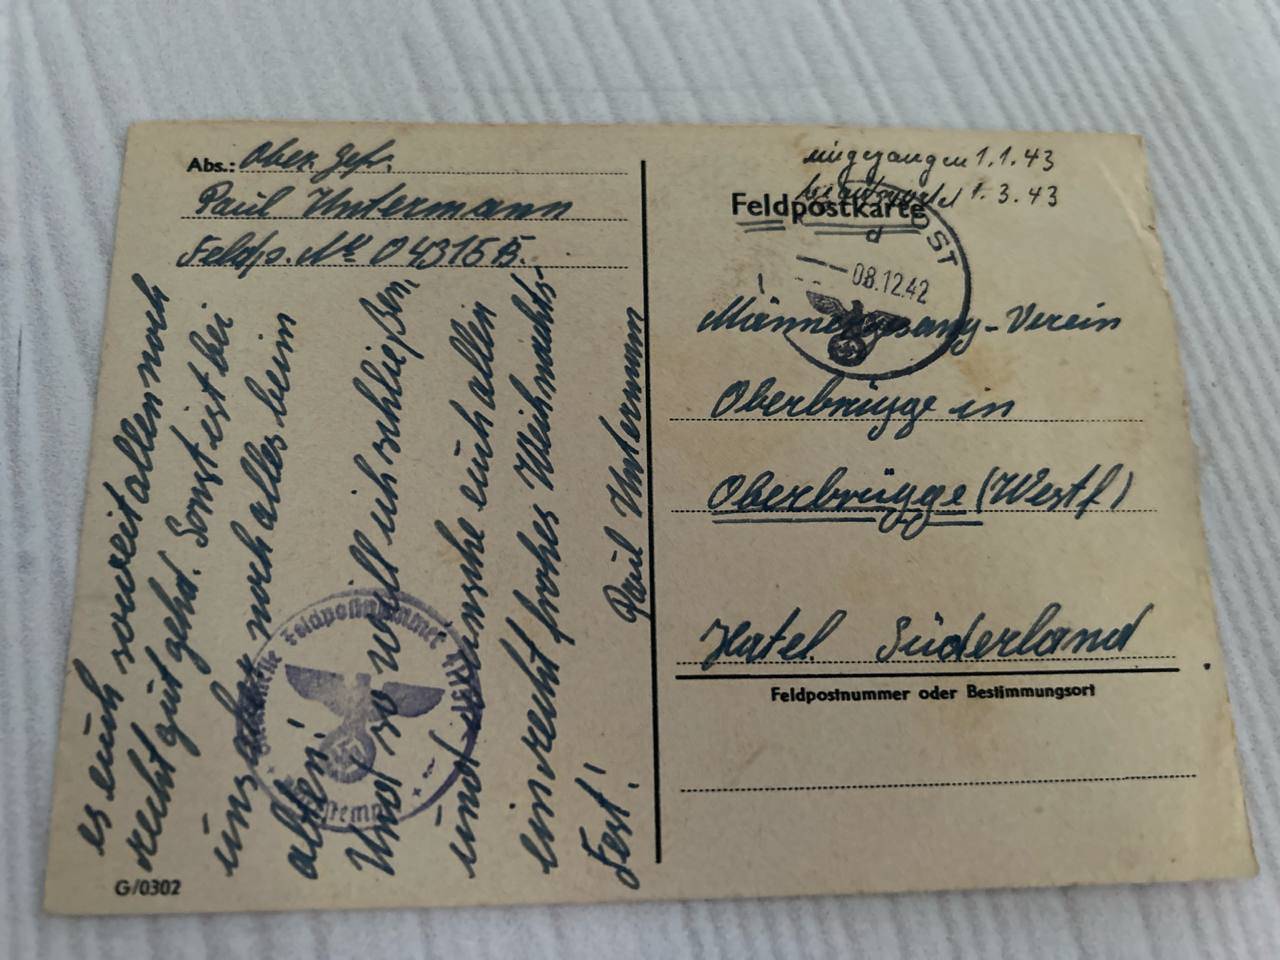 Abs.: Ober. Gefr.
Paul Untermann
Feldp. Nr 04315 B.
es euch soweit allen noch
recht gut geht. Sonst ist bei
uns aber noch alles beim
alten!
Und so will ich schließen,
und wünsche euch allen
ein recht frohes Weihnachts-
Fest!
Paul Untermann
G/0302
eingegangen 1.1.43
beantwortet 1.3.43
Feldpostkarte
d
08.12.42
Männergesang-Verein
Oberbrügge in
Oberbrügge (Westf)
Hotel Süderland
Feldpostnummer oder Bestimmungsort